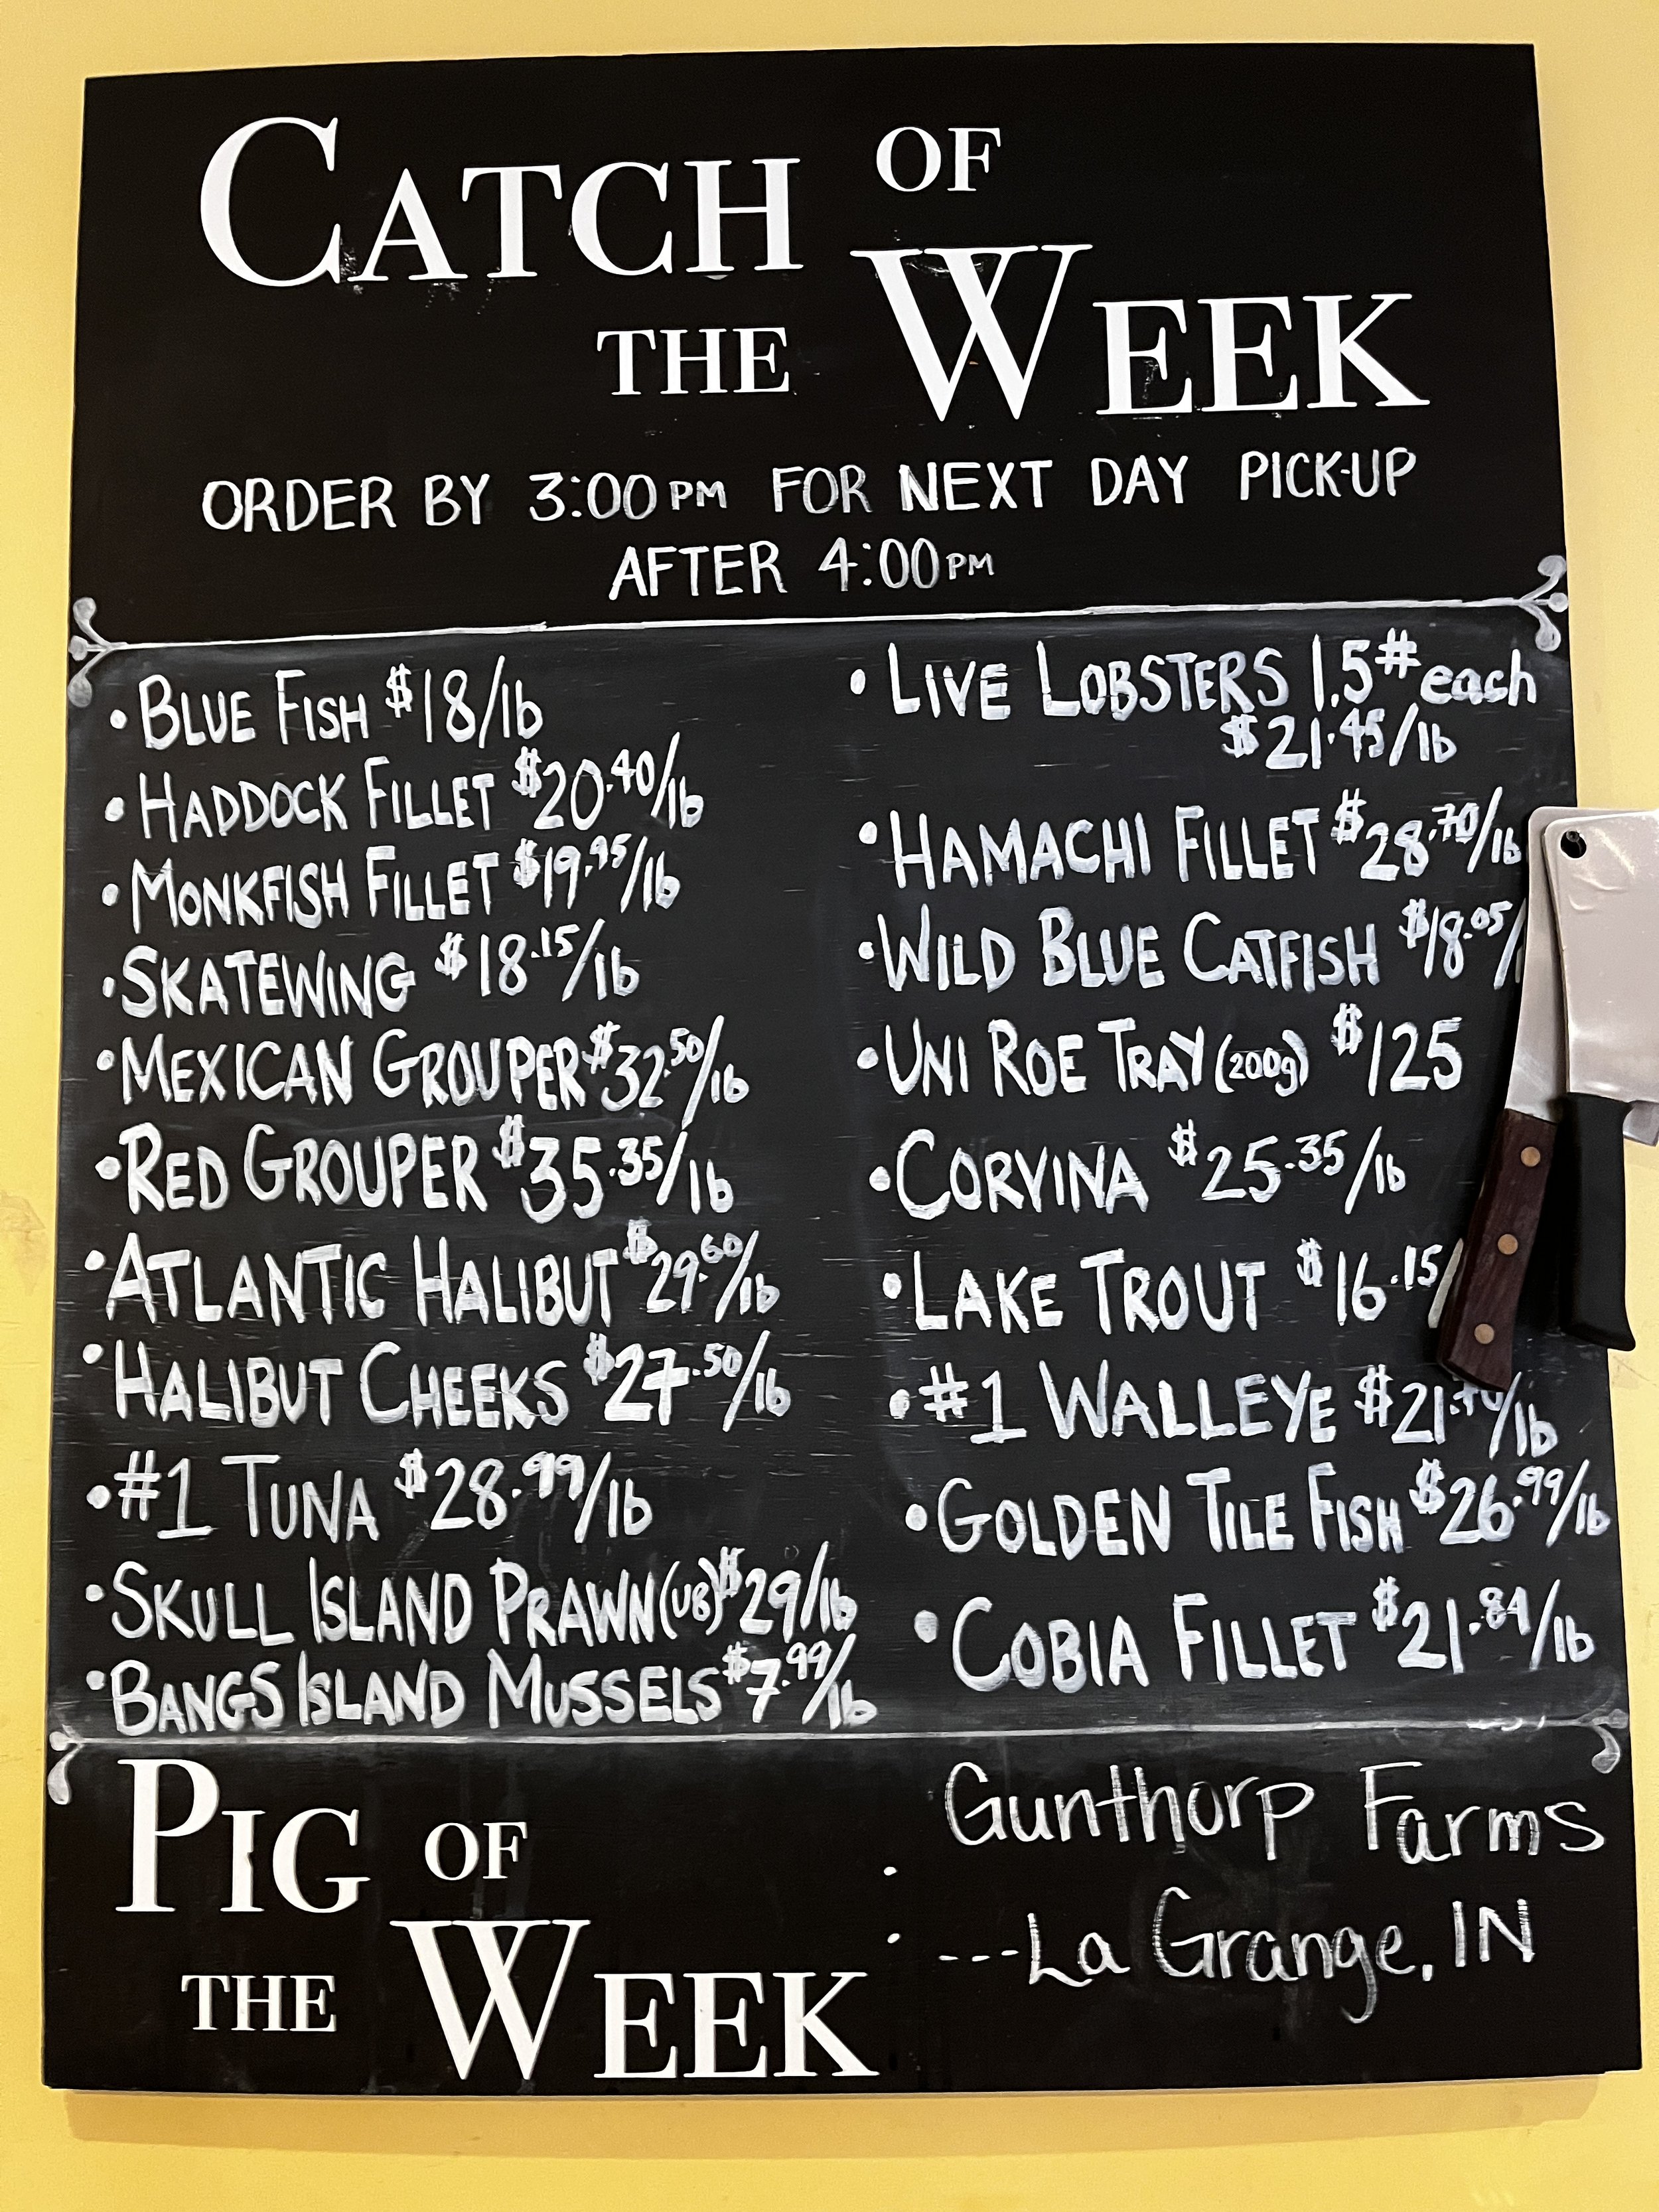 CATCH OF
THE WEEK
ORDER BY 3:00PM FOR NEXT DAY PICK-UP
AFTER 4:00PM
• BLUE FISH $18/lb
• HADDOCK FILLET $20.40/lb
• MONKFISH FILLET $19.95/lb
• SKATEWING $18.15/lb
• MEXICAN GROUPER $32.50/lb
• RED GROUPER $35.35/lb
• ATLANTIC HALIBUT $29.60/lb
• HALIBUT CHEEKS $27.50/lb
• #1 TUNA $28.99/lb
• SKULL ISLAND PRAWN (U8) $29/lb
• BANGS ISLAND MUSSELS $7.99/lb
• LIVE LOBSTERS 1.5# each
$21.45/lb
• HAMACHI FILLET $28.70/lb
• WILD BLUE CATFISH $18.05/
• UNI ROE TRAY (200g) $125
• CORVINA $25.35/lb
• LAKE TROUT $16.15/
• #1 WALLEYE
• GOLDEN TILE FISH $26.99/lb
• COBIA FILLET $21.84/lb
PIG OF
THE WEEK
: Gunthorp Farms
---La Grange, IN